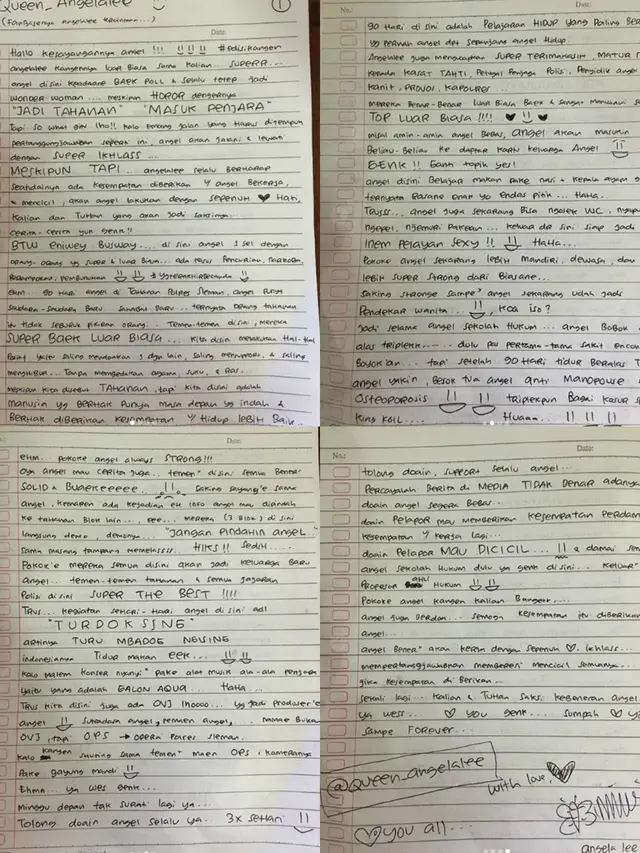 Queen_Angelalee
(FanBasenya Angelalee
①
Date:
Hallo Kesayangannya angel !!! #edisikangen
angelalee kangennya luar Biasa sama kalian. SUPERR...
angel disini keadaane BAEK POLL & selalu tetep jadi
wonder woman.... meskipun HOROR dengernya
"JADI TAHANAN" "MASUK PENJARA"
Tapi so what gitu lho!! kalo emang jalan yg harus ditempuh
pertanggungjawaban seperti ini, angel akan jalani & lewati
dengan SUPER IKHLASS ....
MESKIPUN TAPI.... angelalee selalu berharap
seandainya ada kesempatan diberikan u/ angel Bekerja,
& mencicil, akan angel lakukan dengan sepenuh ♥ Hati,
Kalian dan Tuhan yang akan jadi saksinya.
cerita-cerita yuk genk!!
BTW eniwey Busway.... di sini angel 1 sel dengan
orang-orang yg super & luar Biasa... ada kasus Pencurian, narkoba,
Perampokan, Pembunuhan
ehm... 90 Hari angel di Tahanan Polres Sleman, angel Punya
Saudara-Saudara Baru Sahabat Baru... ternyata orang tahanan
itu tidak seburuk pikiran orang. Temen-temen disini, mereka
SUPER BAEK LUAR BIASA... Kita disini melakukan Hal-Hal
Positif yaitu saling mendoakan 1 dgn lain, saling mensupport, & saling
menghibur... Tanpa mengedepankan agama, suku, & ras...
meskipun kita disebut TAHANAN, tapi kita disini adalah
manusia yg BERHAK Punya masa depan yg indah &
BERHAK diBERIKAN KESEMPATAN u/ Hidup lebih Baik..
No.:
Date:
90 Hari di sini adalah Pelajaran HIDUP yang Paling
yg pernah angel dpt sepanjang angel Hidup.
Angelalee Juga mengucapkan SUPER TERIMAKASIH, MATUR
Kepada KASAT TAHTI, Petugas Penjaga Polisi, Penyidik angel
Kanit, PROVOS, KAPOLRES...
mereka Benar-Benar luar Biasa Baek & sangat
TOP LUAR BIASA !!!! ♥ ♥
misal amin-amin angel Bebas, angel akan masukin
Beliau-Beliau ke daftar Kartu Keluarga Angel
GENK!! Ganti topik yes!
angel disini Belajar makan pake nasi + kepala ayam
ternyata Rasane enak yo endas pitik... Haha..
Truss... angel juga sekarang Bisa ngosek WC, ngepel
ngepel, njemuri Pakean... keluar dr sini siap jadi
Inem Pelayan Sexy!! HaHa...
Pokoke angel sekarang lebih mandiri, dewasa, dan
lebih SUPER Strong dari Biasane..
Saking stronge sampe² angel sekarang udah jadi
Pendekar Wanita.. , koa iso?
Jadi selama angel sekolah Hukum... angel Bobok
alas triplekk.... dulu pas pertama-tama sakit
Boyok'an... tapi setelah 90 Hari tidur Beralas
angel yakin, Besok tua angel anti Manopouse
OSTEOPOROSIS triplekpun Bagai kasur
King Koil.... Huaaa...
Date:
ehm.. Pokoke angel always STRONG!!!
Oya angel mau cerita juga... temen² disini semua Bener²
SOLID & BUAEKEEEEE... Saking sayang'e sama
angel, kemaren ada kejadian eh loro angel mau dipindah
ke tahanan Blok lain.., eee... mereka (3 Blok) di sini
langsung demo, demonya.. "Jangan Pindahin angel.."
sama masang tampang memelasss.. HIKS!! Sedih...
Pokok'e mereka semua disini akan jadi keluarga Baru
angel... temen-temen tahanan & semua jajaran
Polisi disini SUPER THE BEST !!!!
Trus... kegiatan sehari-hari angel disini adl
"TURDOKSING"
artinya TURU MBADOG NEISING
indonesianya Tidur makan eek...
Kalo malem konser nyanyi² pake alat musik ala-ala penjara
yaitu yang adalah GALON AQUA... HaHa...
Trus kita disini juga ada OVJ lhooo... yg jadi producer'e
angel Sutradara angel, pemaen angel, namae Bukan
OVJ, tapi OPS → Opera Polres Sleman.
kalo kangen sauring sama temen² maen OPS, kameranya
Pake gayung mandi
Ehmm... ya wes genk...
Minggu depan tak surati lagi ya...
Tolong doain angel selalu ya.. 3x sehari
No.:
Date:
tolong doain, support selalu angel...
Percayalah Berita di MEDIA TIDAK BENAR adanya
doain angel segera Bebas..
doain Pelapor mau memberikan kesempatan
kesempatan u/ kerja lagi..
doain Pelapor MAU DICICIL.... & damai
angel sekolah Hukum dulu ya genk disini... keluar²
Profesor AHLI Hukum
Pokoke angel kangen kalian Banget...
angel juga Berdoa... semoga kesempatan itu diberikan
angel...
angel Bener² akan kerja dengan sepenuh ♡. Ikhlass...
mempertanggjawabkan memberesi mencicil semuanya..
jika kesempatan di Berikan..
sekali lagi... kalian & Tuhan saksi kebenaran angel
ya wess... ♡ you genk... sumpah ♡
sampe Forever...
@queen_angelalee
with love,
♡ you all...
angela lee